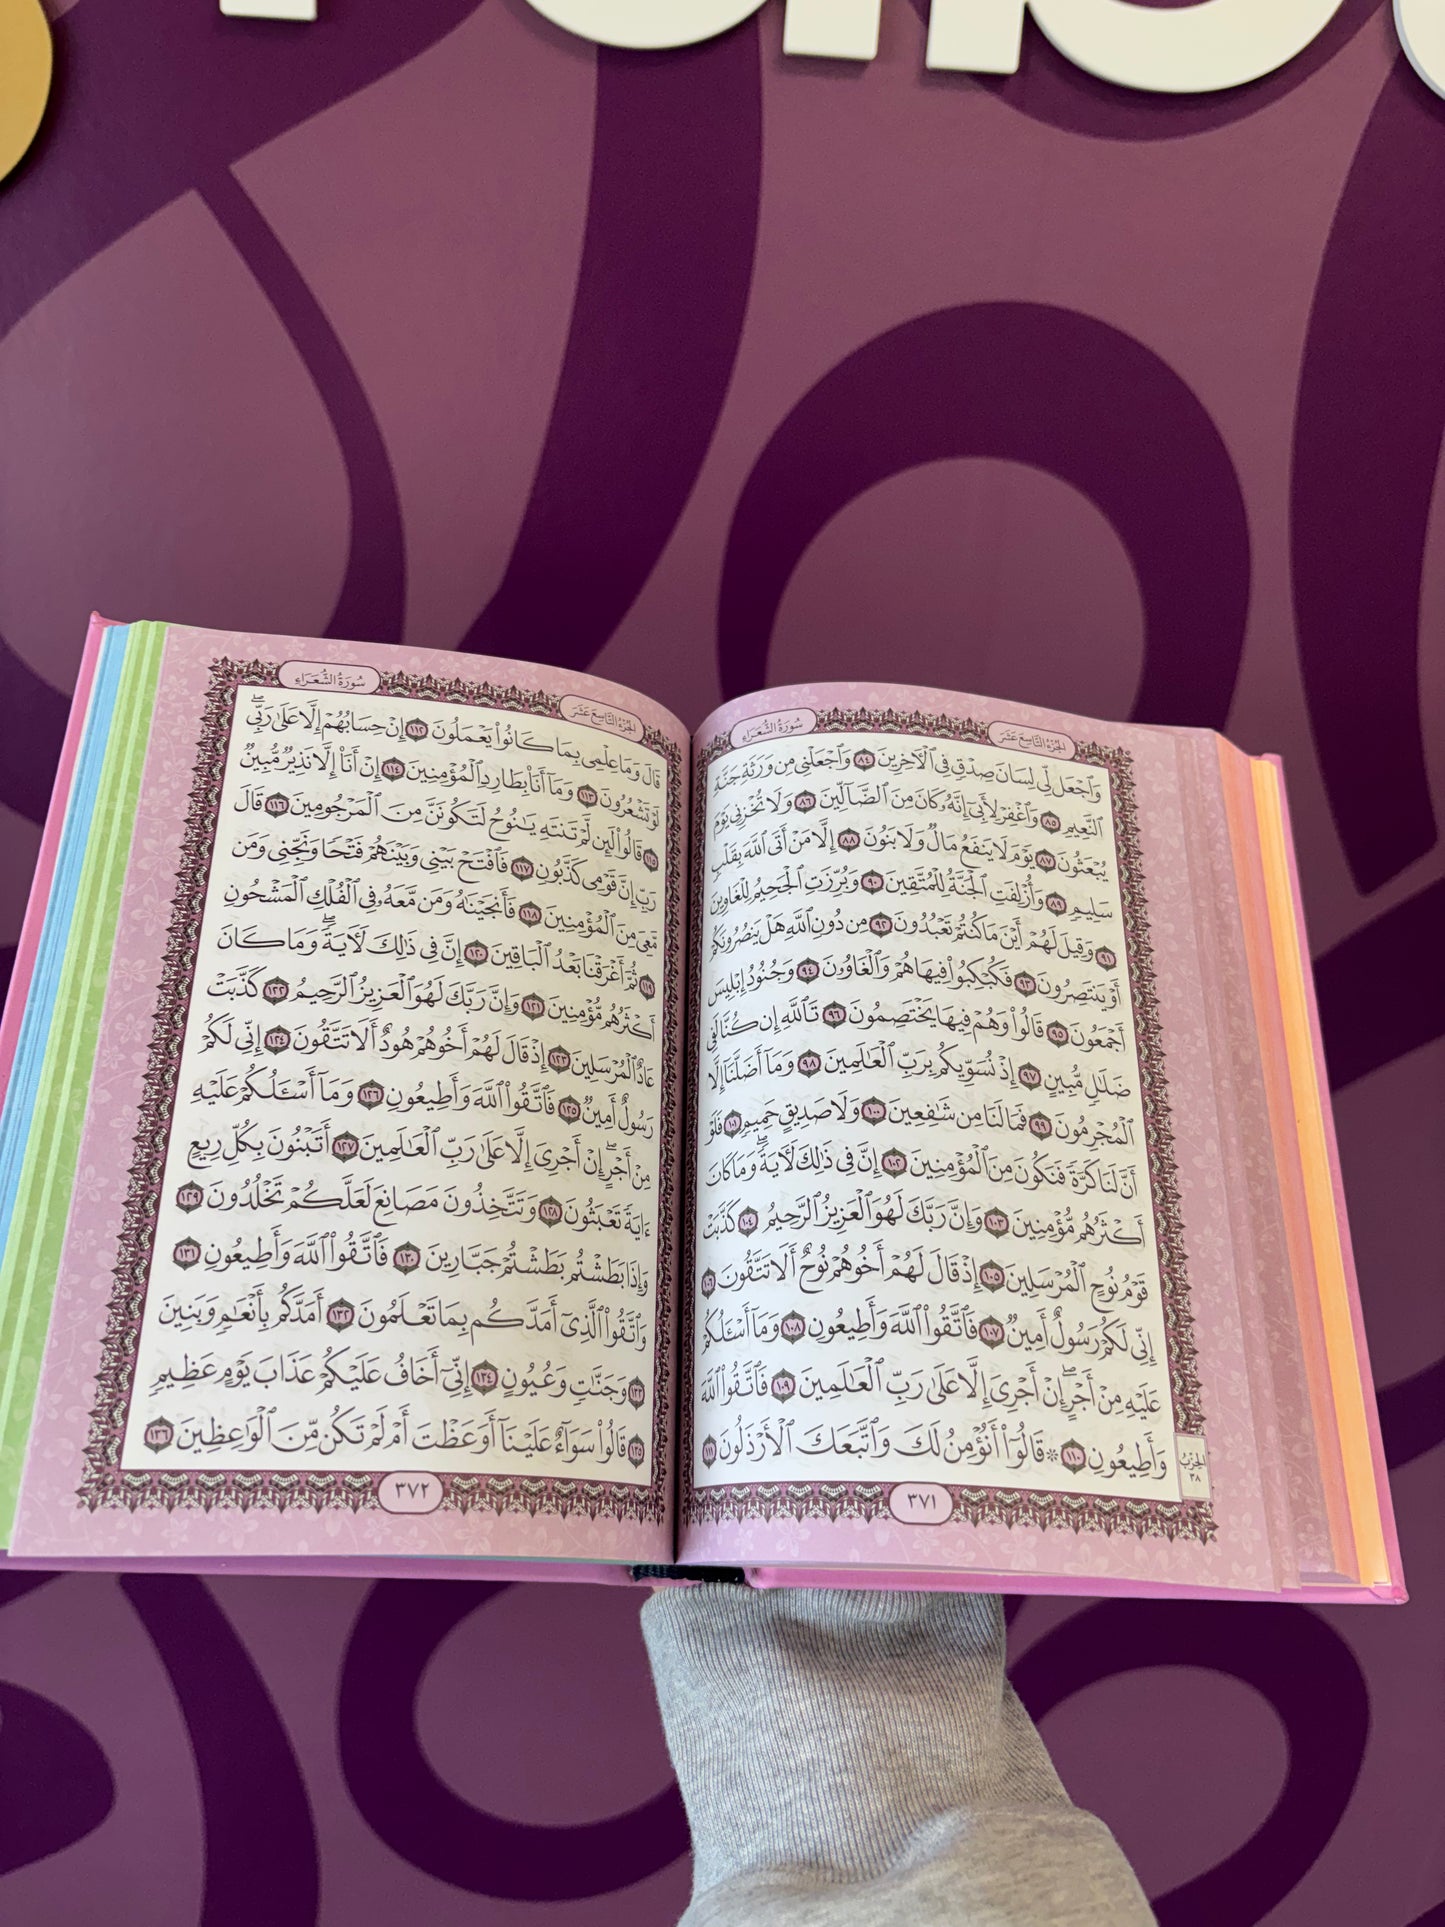 الجُزْءُ التَّاسِعَ عَشَرَ
سُورَةُ الشُّعَرَاءِ
وَٱجْعَل لِّى لِسَانَ صِدْقٍ فِى ٱلْأَخِرِينَ ٨٤ وَٱجْعَلْنِى مِن وَرَثَةِ جَنَّةِ
ٱلنَّعِيمِ ٨٥ وَٱغْفِرْ لِأَبِىٓ إِنَّهُۥ كَانَ مِنَ ٱلضَّآلِّينَ ٨٦ وَلَا تُخْزِنِى يَوْمَ
يُبْعَثُونَ ٨٧ يَوْمَ لَا يَنفَعُ مَالٌ وَلَا بَنُونَ ٨٨ إِلَّا مَنْ أَتَى ٱللَّهَ بِقَلْبٍ
سَلِيمٍ ٨٩ وَأُزْلِفَتِ ٱلْجَنَّةُ لِلْمُتَّقِينَ ٩٠ وَبُرِّزَتِ ٱلْجَحِيمُ لِلْغَاوِينَ
٩١ وَقِيلَ لَهُمْ أَيْنَ مَا كُنتُمْ تَعْبُدُونَ ٩٢ مِن دُونِ ٱللَّهِ هَلْ يَنصُرُونَكُمْ
أَوْ يَنتَصِرُونَ ٩٣ فَكُبْكِبُوا۟ فِيهَا هُمْ وَٱلْغَاوُۥنَ ٩٤ وَجُنُودُ إِبْلِيسَ
أَجْمَعُونَ ٩٥ قَالُوا۟ وَهُمْ فِيهَا يَخْتَصِمُونَ ٩٦ تَٱللَّهِ إِن كُنَّا لَفِى
ضَلَٰلٍ مُّبِينٍ ٩٧ إِذْ نُسَوِّيكُم بِرَبِّ ٱلْعَٰلَمِينَ ٩٨ وَمَآ أَضَلَّنَآ إِلَّا
ٱلْمُجْرِمُونَ ٩٩ فَمَا لَنَا مِن شَٰفِعِينَ ١٠٠ وَلَا صَدِيقٍ حَمِيمٍ ١٠١ فَلَوْ
أَنَّ لَنَا كَرَّةً فَنَكُونَ مِنَ ٱلْمُؤْمِنِينَ ١٠٢ إِنَّ فِى ذَٰلِكَ لَأَيَةً ۖ وَمَا كَانَ
أَكْثَرُهُم مُّؤْمِنِينَ ١٠٣ وَإِنَّ رَبَّكَ لَهُوَ ٱلْعَزِيزُ ٱلرَّحِيمُ ١٠٤ كَذَّبَتْ
قَوْمُ نُوحٍ ٱلْمُرْسَلِينَ ١٠٥ إِذْ قَالَ لَهُمْ أَخُوهُمْ نُوحٌ أَلَا تَتَّقُونَ ١٠٦
إِنِّى لَكُمْ رَسُولٌ أَمِينٌ ١٠٧ فَٱتَّقُوا۟ ٱللَّهَ وَأَطِيعُونِ ١٠٨ وَمَآ أَسْـَٔلُكُمْ
عَلَيْهِ مِنْ أَجْرٍ ۖ إِنْ أَجْرِىَ إِلَّا عَلَىٰ رَبِّ ٱلْعَٰلَمِينَ ١٠٩ فَٱتَّقُوا۟ ٱللَّهَ
وَأَطِيعُونِ ١١٠ ۞ قَالُوٓا۟ أَنُؤْمِنُ لَكَ وَٱتَّبَعَكَ ٱلْأَرْذَلُونَ ١١١
الحِزْبُ
٣٨
٣٧١
الجُزْءُ التَّاسِعَ عَشَرَ
سُورَةُ الشُّعَرَاءِ
قَالَ وَمَا عِلْمِى بِمَا كَانُوا۟ يَعْمَلُونَ ١١٢ إِنْ حِسَابُهُمْ إِلَّا عَلَىٰ رَبِّى ۖ
لَوْ تَشْعُرُونَ ١١٣ وَمَآ أَنَا۠ بِطَارِدِ ٱلْمُؤْمِنِينَ ١١٤ إِنْ أَنَا۠ إِلَّا نَذِيرٌ مُّبِينٌ
١١٥ قَالُوا۟ لَئِن لَّمْ تَنتَهِ يَٰنُوحُ لَتَكُونَنَّ مِنَ ٱلْمَرْجُومِينَ ١١٦ قَالَ
رَبِّ إِنَّ قَوْمِى كَذَّبُونِ ١١٧ فَٱفْتَحْ بَيْنِى وَبَيْنَهُمْ فَتْحًا وَنَجِّنِى وَمَن
مَّعِىَ مِنَ ٱلْمُؤْمِنِينَ ١١٨ فَأَنجَيْنَٰهُ وَمَن مَّعَهُۥ فِى ٱلْفُلْكِ ٱلْمَشْحُونِ
١١٩ ثُمَّ أَغْرَقْنَا بَعْدُ ٱلْبَاقِينَ ١٢٠ إِنَّ فِى ذَٰلِكَ لَأَيَةً ۖ وَمَا كَانَ
أَكْثَرُهُم مُّؤْمِنِينَ ١٢١ وَإِنَّ رَبَّكَ لَهُوَ ٱلْعَزِيزُ ٱلرَّحِيمُ ١٢٢ كَذَّبَتْ
عَادٌ ٱلْمُرْسَلِينَ ١٢٣ إِذْ قَالَ لَهُمْ أَخُوهُمْ هُودٌ أَلَا تَتَّقُونَ ١٢٤ إِنِّى لَكُمْ
رَسُولٌ أَمِينٌ ١٢٥ فَٱتَّقُوا۟ ٱللَّهَ وَأَطِيعُونِ ١٢٦ وَمَآ أَسْـَٔلُكُمْ عَلَيْهِ
مِنْ أَجْرٍ ۖ إِنْ أَجْرِىَ إِلَّا عَلَىٰ رَبِّ ٱلْعَٰلَمِينَ ١٢٧ أَتَبْنُونَ بِكُلِّ رِيعٍ
ءَايَةً تَعْبَثُونَ ١٢٨ وَتَتَّخِذُونَ مَصَانِعَ لَعَلَّكُمْ تَخْلُدُونَ ١٢٩
وَإِذَا بَطَشْتُم بَطَشْتُمْ جَبَّارِينَ ١٣٠ فَٱتَّقُوا۟ ٱللَّهَ وَأَطِيعُونِ ١٣١
وَٱتَّقُوا۟ ٱلَّذِىٓ أَمَدَّكُم بِمَا تَعْلَمُونَ ١٣٢ أَمَدَّكُم بِأَنْعَٰمٍ وَبَنِينَ
١٣٣ وَجَنَّٰتٍ وَعُيُونٍ ١٣٤ إِنِّىٓ أَخَافُ عَلَيْكُمْ عَذَابَ يَوْمٍ عَظِيمٍ
١٣٥ قَالُوا۟ سَوَآءٌ عَلَيْنَآ أَوَعَظْتَ أَمْ لَمْ تَكُن مِّنَ ٱلْوَٰعِظِينَ ١٣٦
٣٧٢